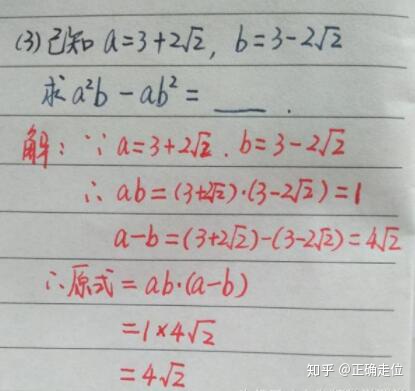 (3)已知 a=3+2√2, b=3-2√2
求a²b-ab²=____.
解:∵a=3+2√2.b=3-2√2
∴ab=(3+2√2)·(3-2√2)=1
a-b=(3+2√2)-(3-2√2)=4√2
∴原式=ab·(a-b)
=1×4√2
=4√2
知乎 @正确走位